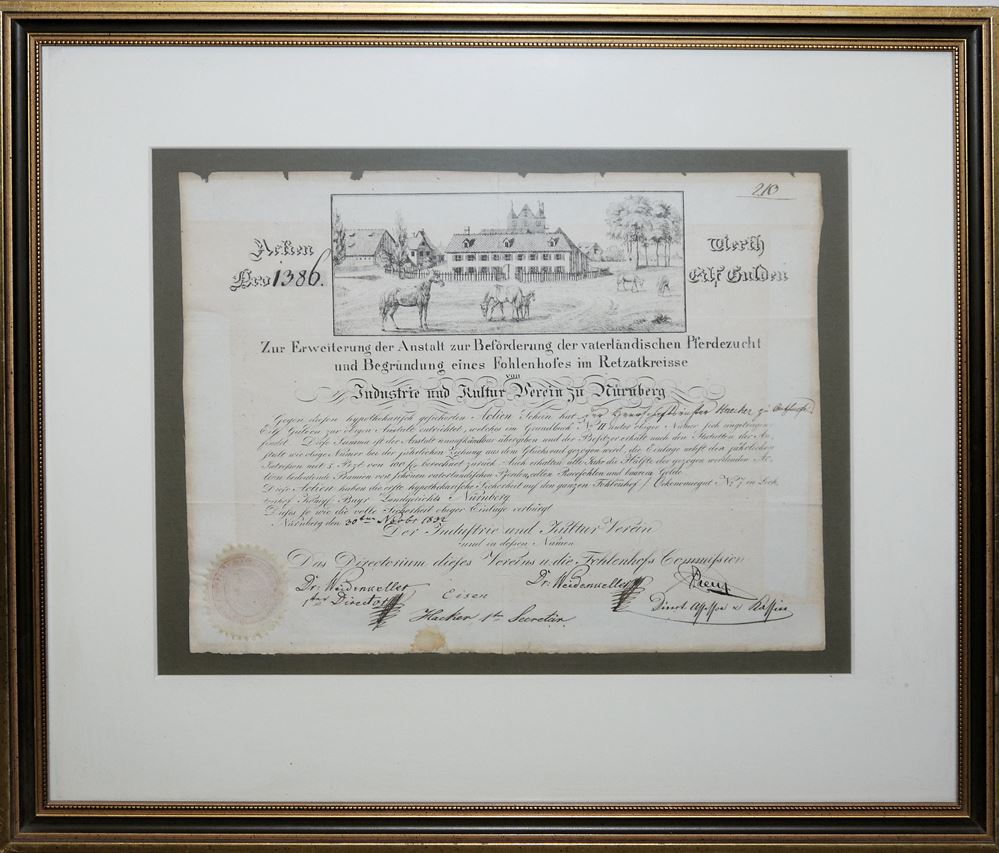 210
Actien
Nro 1386.
Werth
Eilf Gulden
Zur Erweiterung der Anstalt zur Beförderung der vaterländischen Pferdezucht
und Begründung eines Fohlenhofes im Retzatkreisse
von
Industrie und Kultur Verein zu Nürnberg
Gegen diesen hypothekarisch gesicherten Actien Schein hat der
Eilf Gulden zur obigen Anstalt entrichtet, welches im Grundbuch No II unter obiger Numer sich eingetragen
findet. Diese Summa ist der Anstalt unaufkündbar übergeben und der Besitzer erhält nach den Statuten der An-
stalt wie obige Numer bei der jährlichen Ziehung aus dem Glücksrad gezogen wird, die Einlage nebst den jährlichen
Intressen mit 5 Przt von 100 fl. berechnet zurück. Auch erhalten alle Jahr die Hälfte der gezogen werdenden Ac-
tien bedeutende Prämien von schönen vaterländischen Pferden, edlen Racefohlen und baarem Gelde.
Diese Actien haben die erste hypothekarische Sicherheit auf den ganzen Fohlenhof / Oekonomiegut No 7 in Lich-
tenhof Königl. Bayr. Landgerichts Nürnberg.
Diess so wie die volle Sicherheit obiger Einlage verbürgt
Nürnberg den 30ten Novbr 1832
Der Industrie und Kultur Verein
und in dessen Namen
Das Directorium dieses Vereins u. die Fohlenhofs Commission
Dr. Weidenkeller
1ter Director
Eisen
Hacker 1ter Secretär.
Dr. Weidenkeller